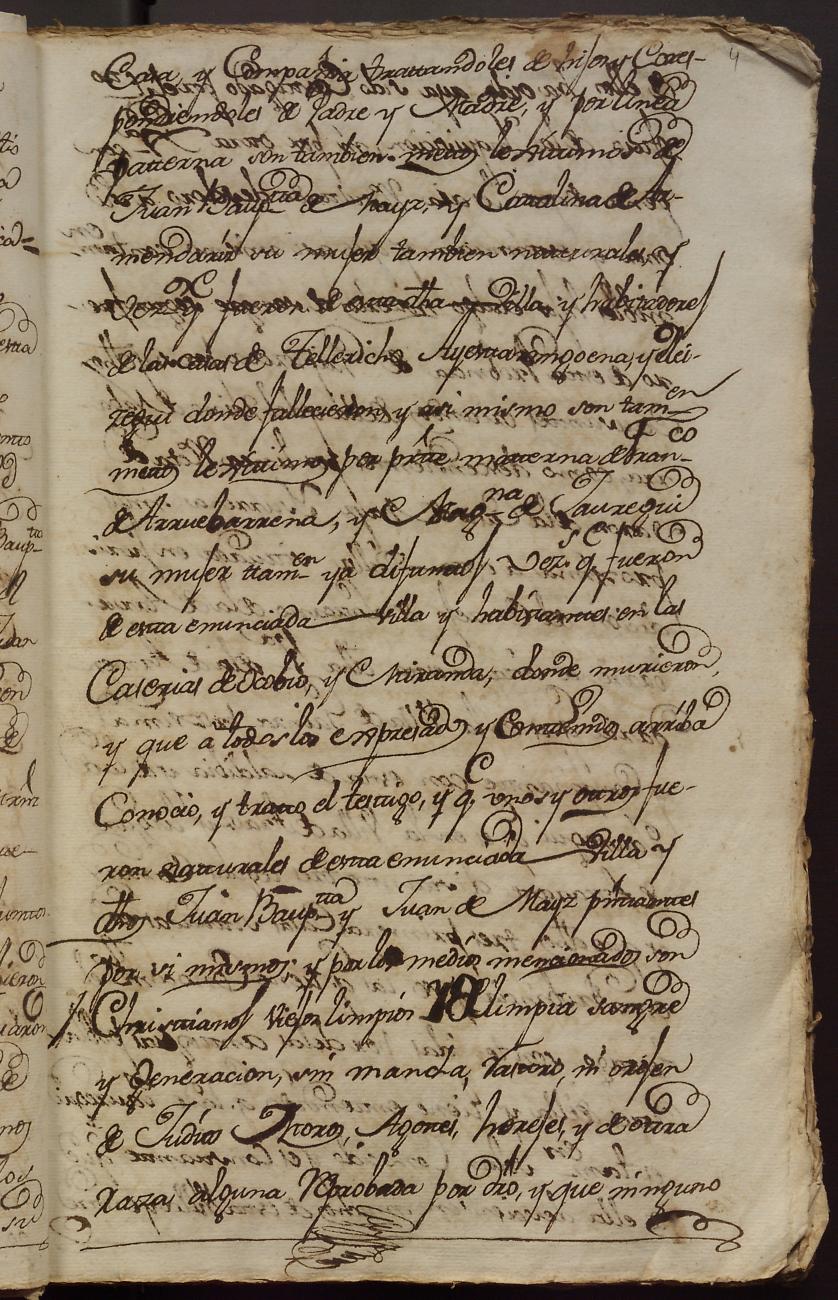 4
Casa, y Compañia trattandoles de hijos y Corres-
pondiendoles de Padre y Madre, y por linea
Patterna son tambien nietos lexitimos de
Juan Bapta de Mayz, y Catalina de
mendariz su mujer tambien natturales, y
vezs q fueron de esta dha Villa y habitadores
de las casas de Tellerich Ayestarangoena, y Elei-
zegui donde fallecieron, y asi mismo son tamen
nietos lexitimos por prte matterna de Franco
de Arruebarrena, y Magna de Jauregui
su mujer ttamen ya difuntos Vezs q. fueron
de esta enunciada Villa y habitantes en las
Caserias de Scobio, y Miranda, donde murieron,
y que a todos los expresados y Conttenidos arriba
Conocio, y tratto el testigo, y q. unos y ottros fue-
ron natturales de esta enunciada Villa y
dhos Juan Bapttta y Juan de Mayz pittantes
por si mismos, y por los medios mencionados son
Christianos viejos limpios de limpia sangre
y Generacion, sin mancha, rastro, ni orijen
de Judios Moros, Agotes, herejes, y de ottra
raza alguna Reprobada por dro, y que ninguno